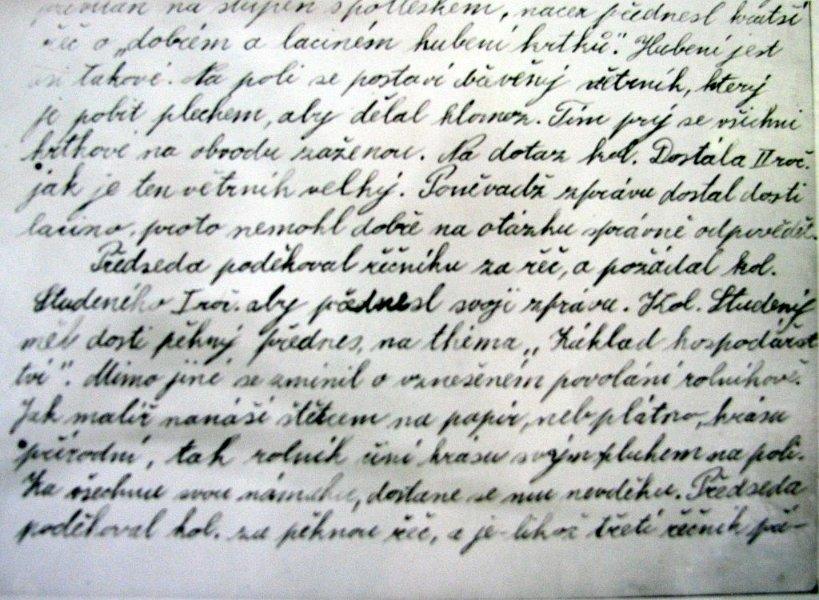 přivítán na stupeň s potleskem, načež přednesl kratší
řeč o „dobrém a laciném hubení krtků“. Hubení jest
asi takové. Na poli se postaví dřevěný větrník, který
je pobit plechem, aby dělal klomoz. Tím prý se všichni
krtkové na obvodu zaženou. Na dotaz kol. Dostála II roč.
jak je ten větrník velký. Poněvadž zprávu dostal dosti
lacino, proto nemohl dobře na otázku správně odpovědět.
Předseda poděkoval řečníku za řeč, a požádal kol.
Studeného I roč. aby přednesl svoji zprávu. Kol. Studený
měl dosti pěkný přednes, na thema „Základ hospodářst
tví“. Mimo jiné se zmínil o vznešeném povolání rolníkově.
Jak malíř nanáší štětcem na papír, neb plátno, krásu
přírodní, tak rolník činí krásu svým pluhem na poli.
Za všechnu svou námahu, dostane se mu nevděku. Předseda
poděkoval kol. za pěknou řeč, a je-likož třetí řečník pě-